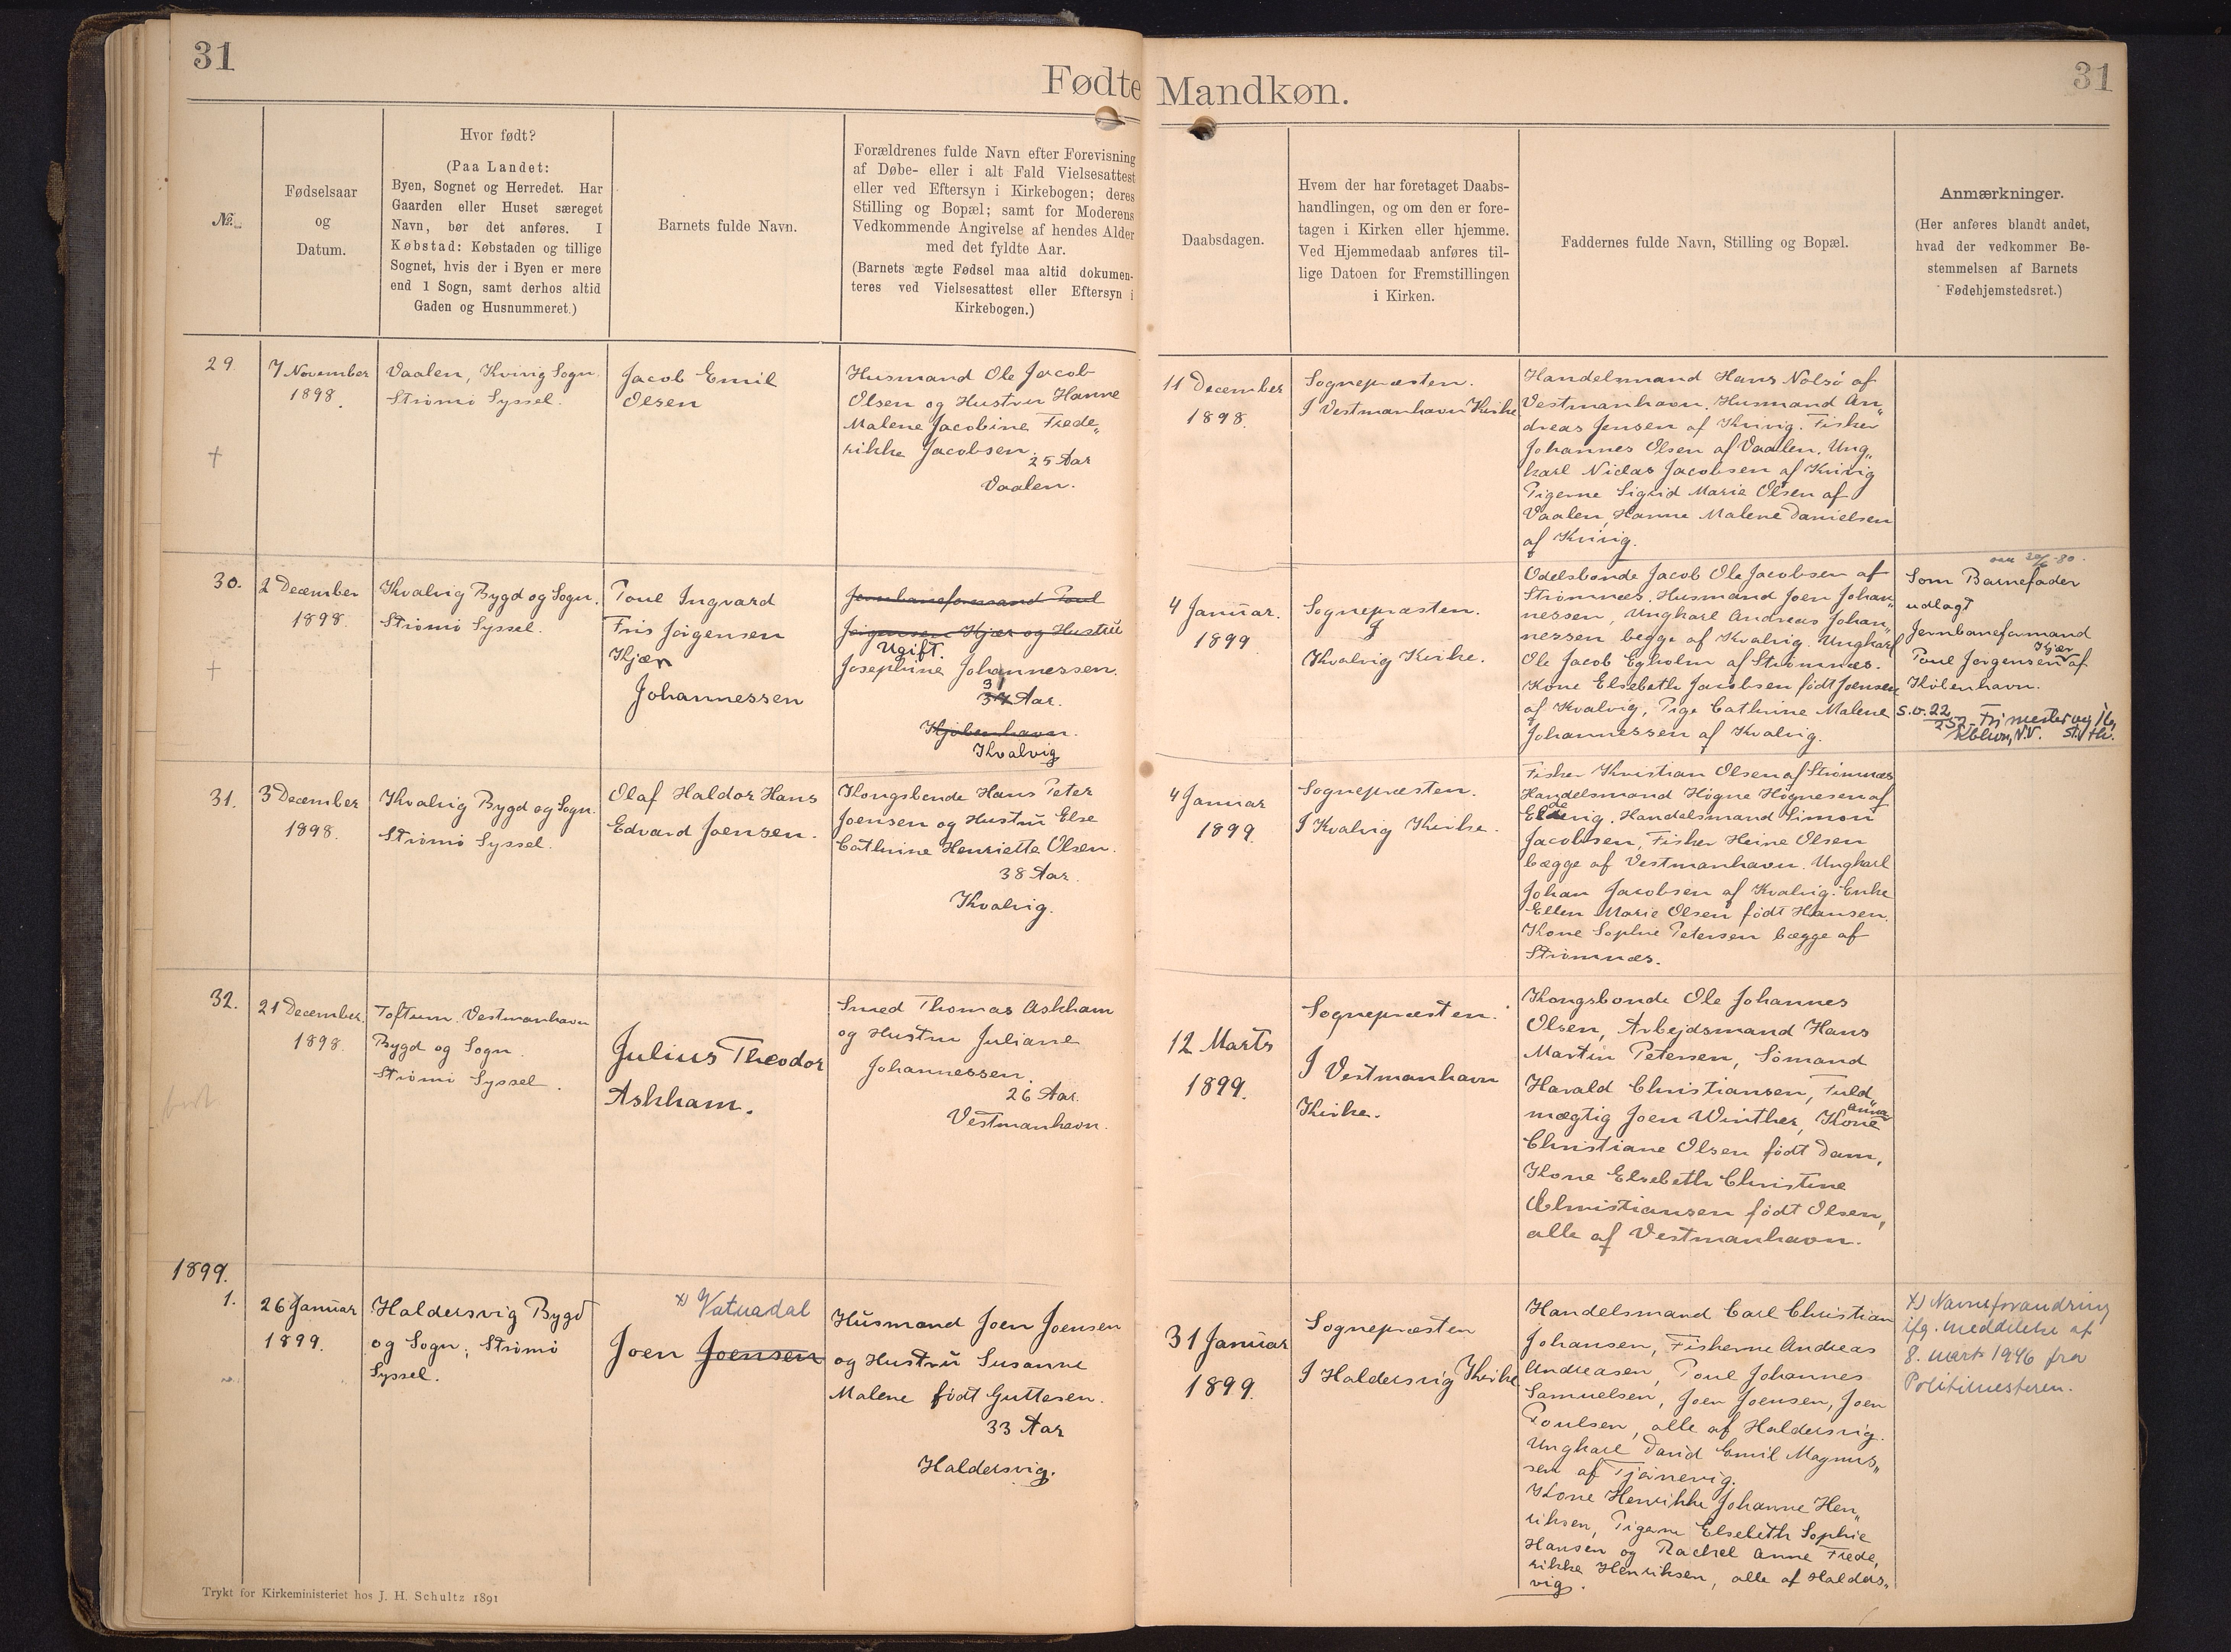 31
Fødte Mandkøn.
31
№.
Fødselsaar
og
Datum.
Hvor født?
(Paa Landet:
Byen, Sognet og Herredet. Har
Gaarden eller Huset særeget
Navn, bør det anføres. I
Købstad: Købstaden og tillige
Sognet, hvis der i Byen er mere
end 1 Sogn, samt derhos altid
Gaden og Husnummeret.)
Barnets fulde Navn.
Forældrenes fulde Navn efter Forevisning
af Døbe- eller i alt Fald Vielsesattest
eller ved Eftersyn i Kirkebogen; deres
Stilling og Bopæl; samt for Moderens
Vedkommende Angivelse af hendes Alder
med det fyldte Aar.
(Barnets ægte Fødsel maa altid dokumen-
teres ved Vielsesattest eller Eftersyn i
Kirkebogen.)
Daabsdagen.
Hvem der har foretaget Daabs-
handlingen, og om den er fore-
tagen i Kirken eller hjemme.
Ved Hjemmedaab anføres til-
lige Datoen for Fremstillingen
i Kirken.
Faddernes fulde Navn, Stilling og Bopæl.
Anmærkninger.
(Her anføres blandt andet,
hvad der vedkommer Be-
stemmelsen af Barnets
Fødehjemstedsret.)
29.
†
7 November
1898.
Vaalen, Kvivig Sogn.
Strømø Syssel.
Jacob Emil
Olsen
Husmand Ole Jacob
Olsen og Hustru Hanne
Malene Jacobine Frede„
rikke Jacobsen.
25 Aar
Vaalen.
11 December
1898.
Sognepræsten.
I Vestmanhavn Kirke
Handelsmand Hans Nolsø af
Vestmanhavn. Husmand An„
dreas Jensen af Kvivig. Fisker
Johannes Olsen af Vaalen. Ung„
karl Niclas Jacobsen af Kvivig
Pigerne Sigrid Marie Olsen af
Vaalen, Hanne Malene Danielsen
af Kvivig.
30.
†
2 December
1898.
Kvalvig Bygd og Sogn.
Strømø Syssel.
Poul Ingvard
Friis Jörgensen
Kjær
Johannessen
Jernbaneformand Poul
Jörgensen Kjær og Hustru
Ugift.
Josephine Johannessen.
31
37 Aar.
Kjøbenhavn.
Kvalvig
4 Januar.
1899.
Sognepræsten.
I
Kvalvig Kirke.
Odelsbonde Jacob Ole Jacobsen af
Strømnæs. Husmand Joen Johan„
nessen, Ungkarl Andreas Johan„
nessen begge af Kvalvig. Ungkarl
Ole Jacob Egholm af Strømnæs.
Kone Elsebeth Jacobsen født Joensen
af Kvalvig, Pige Cathrine Malene
Johannessen af Kvalvig.
Som Barnefader
udlagt
Jernbaneformand
Kjær
Poul Jørgensen af
København.
31.
3 December
1898.
Kvalvig Bygd og Sogn.
Strømø Syssel.
Olaf Haldor Hans
Edvard Joensen.
Kongsbonde Hans Peter
Joensen og Hustru Else
Cathrine Henriette Olsen.
38 Aar.
Kvalvig.
4 Januar
1899.
Sognepræsten.
I Kvalvig Kirke.
Fisker Kristian Olsen af Strømnæs
Handelsmand Högne Högnesen af
Eldevig. Handelsmand Simon
Jacobsen, Fisker Heine Olsen
begge af Vestmanhavn. Ungkarl
Johan Jacobsen af Kvalvig. Enke
Ellen Marie Olsen født Hansen.
Kone Sophie Petersen begge af
Strømnæs.
32.
21 December.
1898.
Toftum. Vestmanhavn
Bygd og Sogn.
Strømø Syssel.
Julius Theodor
Askham.
Smed Thomas Askham
og Hustru Juliane
Johannessen.
26 Aar.
Vestmanhavn.
12 Marts
1899.
Sognepræsten.
I Vestmanhavn
Kirke.
Kongsbonde Ole Johannes
Olsen, Arbejdsmand Hans
Martin Petersen, Sömand
Harald Christiansen, Fuld„
mægtig Joen Winther, Kone
Anna
Christiane Olsen født Dam,
Kone Elsebeth Christine
Christiansen født Olsen,
alle af Vestmanhavn.
1899.
1.
26 Januar
1899.
Haldersvig Bygd
og Sogn; Strømø
Syssel.
x) Vatnadal
Joen Joensen
Husmand Joen Joensen
og Hustru Susanne
Malene født Guttesen.
33 Aar
Haldersvig.
31 Januar
1899.
Sognepræsten
I Haldersvig Kirke
Handelsmand Carl Christian
Johansen, Fiskerne Andreas
Andreasen, Poul Johannes
Samuelsen, Joen Joensen, Joen
Poulsen, alle af Haldersvig.
Ungkarl David Emil Magnus„
sen af Tjørnevig.
Kone Henrikke Johanne Hen„
riksen, Pigerne Elsebeth Sophie
Hansen og Rachel Anne Frede„
rikke Henriksen, alle af Halders„
vig.
x) Navneforandring
ifg. meddelelse af
8. marts 1946 fra
Politimesteren.
Trykt for Kirkeministeriet hos J. H. Schultz 1891